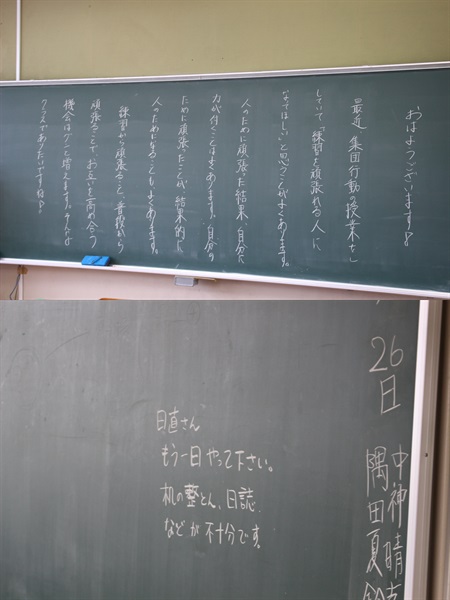 おはようございます!!
最近、集団行動の授業を
していて、「練習を頑張れる人」に
なってほしいと思うことがよくあります。
人のために頑張った結果、自分に
力が付くことはよくあります。自分の
ために頑張ったことが、結果的に
人のためになることもよくあります。
練習から頑張ること、普段から
頑張ることで、お互いを高め合う
機会はグンと増えます。そんな
クラスでありたいですね!!
26日
中神晴
隅田夏鈴
日直さん
もう一日やって下さい。
机の整とん、日誌
などが不十分です。